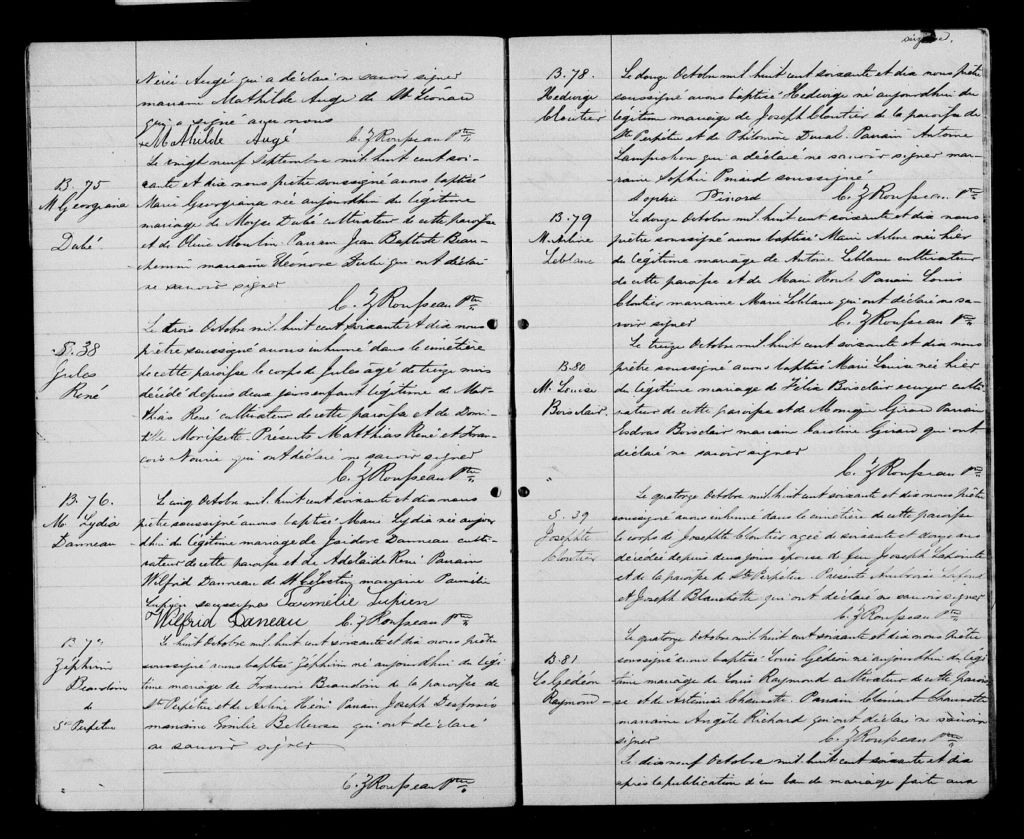 Nérée Augé qui a déclaré ne savoir signer
marraine Mathilde Augé de St Léonard
qui a signé avec nous
Mathilde Augé C. Z Rousseau Ptre
B. 75
M Georgiana
Dubé
Le vingt neuf Septembre mil huit cent soi-
xante et dix nous prêtre soussigné avons baptisé
Marie Georgiana née aujourdhui du légitime
mariage de Moyse Dubé cultivateur de cette paroisse
et de Olive Moulin. Parrain Jean Baptiste Beau-
chemin marraine Eléonore Dubé qui ont déclaré
ne savoir signer
C. Z Rousseau Ptre
S. 38
Jules
René
Le trois Octobre mil huit cent soixante et dix nous
prêtre soussigné avons inhumé dans le cimetière
de cette paroisse le corps de Jules agé de treize mois
décédé depuis deux jours enfant légitime de Mat-
thias René cultivateur de cette paroisse et de Domi-
tille Morissette. Présents Matthias René et Fran-
cois Nourie qui ont déclaré ne savoir signer
C. Z Rousseau Ptre
B. 76.
M. Lydia
Danneau
Le cinq Octobre mil huit cent soixante et dix nous
prêtre soussigné avons baptisé Marie Lydia née aujour
dhui du légitime mariage de Isidore Danneau culti-
vateur de cette paroisse et de Adélaïde René Parrain
Wilfrid Danneau de St Célestin marraine Parmélie
Lupien soussignés Parmélie Lupien
Wilfrid Daneau C. Z Rousseau Ptre
B. 77
Zéphirin
Beaudoin
de
Ste Perpétue
Le huit Octobre mil huit cent soixante et dix nous prêtre
soussigné avons baptisé Zéphirin né aujourdhui du légi
time mariage de Francois Beaudoin de la paroisse de
Ste Perpétue et de Arline Parrain Joseph
marraine Emilie Bellerose qui ont déclaré
ne savoir signer
C. Z Rousseau Ptre
B. 78.
Hedwidge
Cloutier
Le douze Octobre mil huit cent soixante et dix nous prêtre
soussigné avons baptisé Hedwidge né aujourdhui du
légitime mariage de Joseph Cloutier de la paroisse de
Ste Perpétue et de Philomène Duval Parrain Antoine
qui a déclaré ne savoir signer mar-
raine Sophie Pinard soussignée
Sophie Pinord C. Z Rousseau Ptre
B. 79
M. Arline
Leblanc
Le douze Octobre mil huit cent soixante et dix nous
prêtre soussigné avons baptisé Marie Arline née hier
du légitime mariage de Antoine Leblanc cultivateur
de cette paroisse et de Marie Parrain Louis
Cloutier marraine Marie Leblanc qui ont déclaré ne sa-
voir signer C. Z Rousseau Ptre
B. 80
M. Louise
Boisclair
Le treize Octobre mil huit cent soixante et dix nous
prêtre soussigné avons baptisé Marie Louise née hier
du légitime mariage de Félix Boisclair ecuyer culti-
vateur de cette paroisse et de Monique Girard Parrain
Esdras Boisclair marraine Caroline Girard qui ont
déclaré ne savoir signer
C. Z Rousseau Ptre
S. 39
Josephte
Cloutier
Le quatorze Octobre mil huit cent soixante et dix nous prêtre
soussigné avons inhumé dans le cimetière de cette paroisse
le corps de Josephte Cloutier agée de soixante et douze ans
décédée depuis deux jours épouse de feu Joseph Lapointe
et de la paroisse de Ste Perpétue. Présents Ambroise
et Joseph Blanchette qui ont déclaré ne savoir signer
C. Z Rousseau Ptre
B. 81
Ls Gédéon
Raymond
Le quatorze Octobre mil huit cent soixante et dix nous prêtre
soussigné avons baptisé Louis Gédéon né aujourdhui du légi
time mariage de Louis Raymond cultivateur de cette parois
se et de Artémise Parrain Clément
marraine Angèle Richard qui ont déclaré ne savoir
signer C. Z Rousseau Ptre
Le dix neuf Octobre mil huit cent soixante et dix
après la publication d'un ban de mariage faite aux